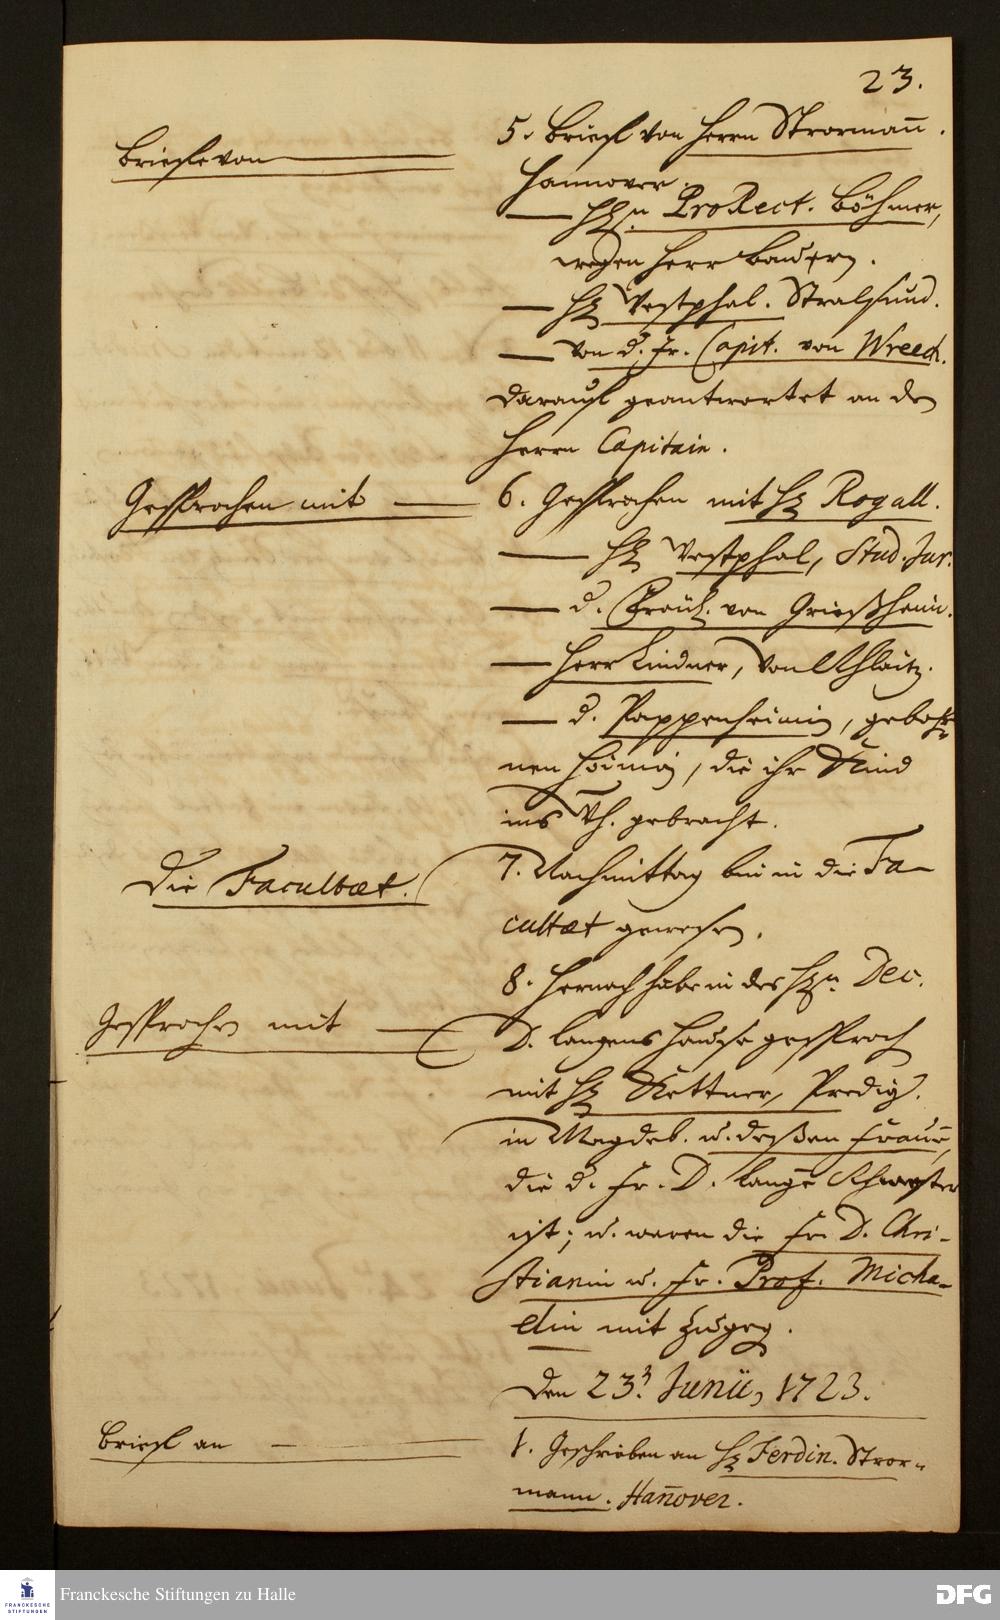 23.
Briefe von
5. Brief von Herrn Strormann.
Hannover.
— Hn. ProRect. Böhmer,
wegen Herr Bauern.
— H. Westphal. Stralsund.
— von d. Fr. Capit. von Wreech.
darauf geantwortet an den
Herrn Capitain.
Gesprochen mit —
6. Gesprochen mit H. Rogall.
— H. Westphal, Stud. Jur.
— d. Fräul. von Grießheim.
— Herr Lindner, von
— d. Pappenheimin, geboh-
nen, die ihr Kind
ins gebracht.
Die Facultæt.
7. Nachmittag bin in die Fa-
cultæt gewesen.
8. Hernach habe in des Hn. Dec.
Gesprochen mit —
D. Langens Hause gesproch
mit H. Kettner, Predig.
in Magdeb. u. deßen Frauen,
die d. Fr. D. Langen Schwester
ist; u. waren die Fr. D. Chri-
stianin u. Fr. Prof. Micha-
elin mit zugeg.
Den 23. Junii, 1723.
Brief an —
1. Geschrieben an H. Ferdin. Stror-
mann. Hañover.
Franckesche Stiftungen zu Halle
FRANCKESCHE
STIFTUNGEN
DFG